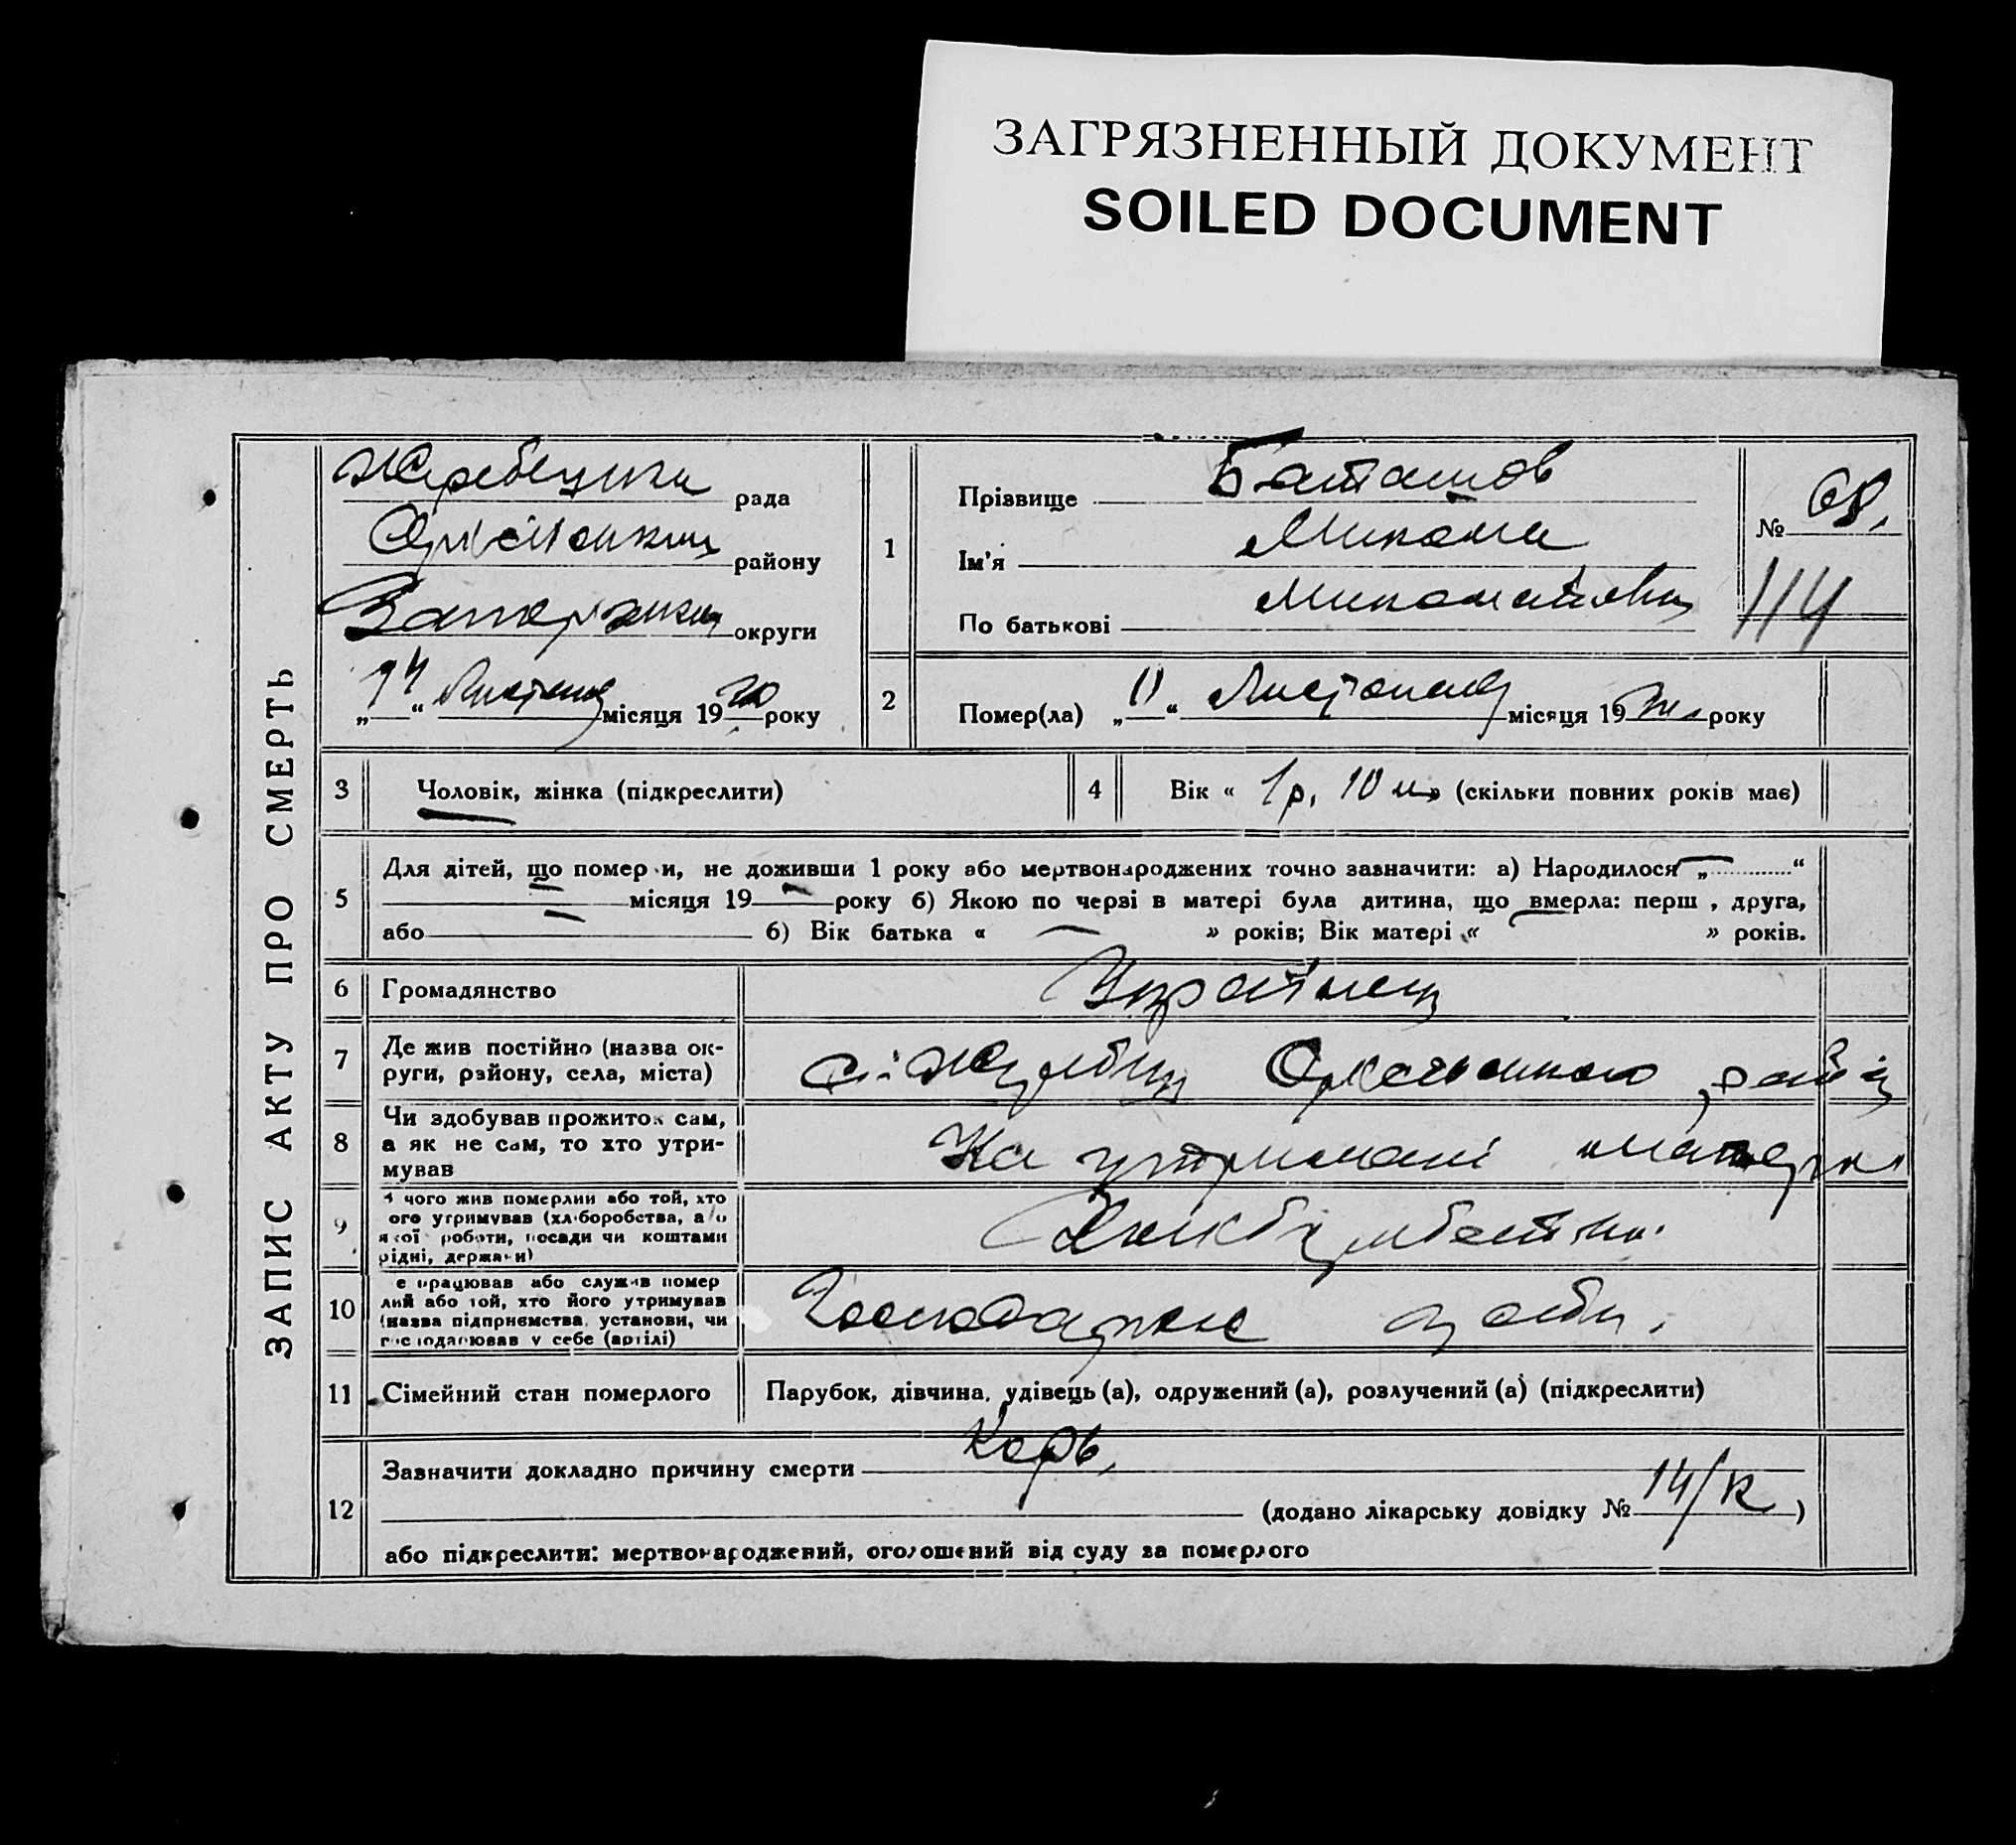 ЗАГРЯЗНЕННЫЙ ДОКУМЕНТ
SOILED DOCUMENT
ЗАПИС АКТУ ПРО СМЕРТЬ
Жеребецька рада
району
округи
„14“ місяця 19 року
1
Прізвище Баташов
Ім'я Микола
По батькові Миколайович
№ 68.
114
2
Помер(ла) „11“ Листопада місяця 19 року
3 Чоловік, жінка (підкреслити)
4 Вік « 1 р. 10 м » (скільки повних років має)
5 Для дітей, що помер и, не доживши 1 року або мертвонароджених точно зазначити: а) Народилося „ “
місяця 19 року б) Якою по черзі в матері була дитина, що вмерла: перш , друга,
або б) Вік батька « » років; Вік матері « » років.
6 Громадянство Українец
7 Де жив постійно (назва ок-
руги, району, села, міста)
с.
8 Чи здобував прожиток сам,
а як не сам, то хто утри-
мував
На утримані матери
9 чого жив померлий або той, хто
ого утримував (хліборобства, або
якої роботи, посади чи коштами
рідні, держави)
10 е працював або служив помер
лий або той, хто його утримував
(назва підприємства, установи, чи
господарював у себе (артілі)
11 Сімейний стан померлого Парубок, дівчина, удівець (а), одружений (а), розлучений (а) (підкреслити)
12 Зазначити докладно причину смерти Корь,
(додано лікарську довідку № 14/к )
або підкреслити: мертвонароджений, оголошений від суду за померлого